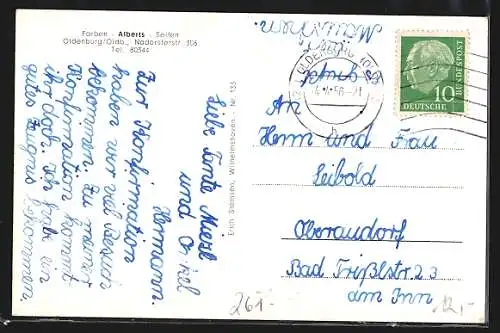 Farben - Alberts - Seifen
Oldenburg/Oldb., Nadorsterstr. 306
Tel. 80544
Liebe Tante Miezl
und Onkel
Hermann.
Zur Konfirmation
haben wir viel Besuch
bekommen. Zu meiner
Konfirmation kommt
ihr doch. Ich habe ein
gutes Zeugnis bekommen.
Erich Stamsen, Wilhelmshaven - Nr. 135
OLDENBURG (OLDB)
DEUTSCHE
BUNDESPOST
10
An
Herrn und Frau
Leibold
Oberaudorf
Bad Trißlstr. 23
am Inn
261-
12,-